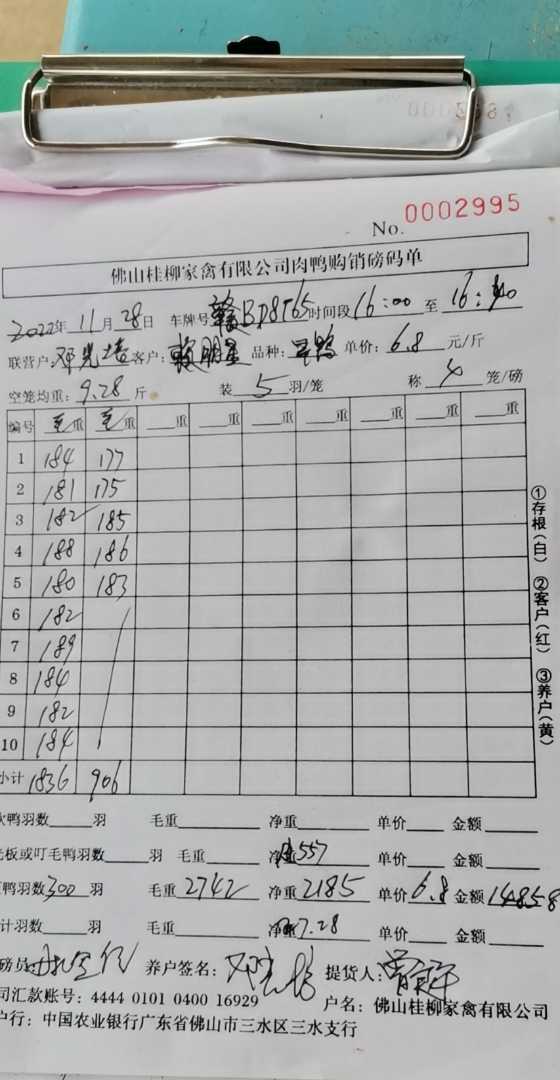 No. 0002995
佛山桂柳家禽有限公司肉鸭购销磅码单
2022年 11月 28日 车牌号 赣BD8T65 时间段 16:00 至 16:40
联营户: 客户: 赖明星 品种: 单价: 6.8 元/斤
空笼均重: 9.28 斤 装 5 羽/笼 称 4 笼/磅
编号 毛重 毛重 重 重 重 重 重 重
1 184 177
2 181 175
3 182 185
4 188 186
5 180 183
6 182
7 189
8 184
9 182
10 184
小计 1836 906
鸭羽数 羽 毛重 净重 单价 金额
板或叮毛鸭羽数 羽 毛重 557 单价 金额
鸭羽数 300 羽 毛重 2742 净重 2185 单价 6.8 金额 14858
计羽数 羽 毛重 7.28 单价 金额
磅员 养户签名: 提货人:
司汇款账号: 4444 0101 0400 16929 户名: 佛山桂柳家禽有限公司
户行: 中国农业银行广东省佛山市三水区三水支行
①存根(白) ②客户(红) ③养户(黄)